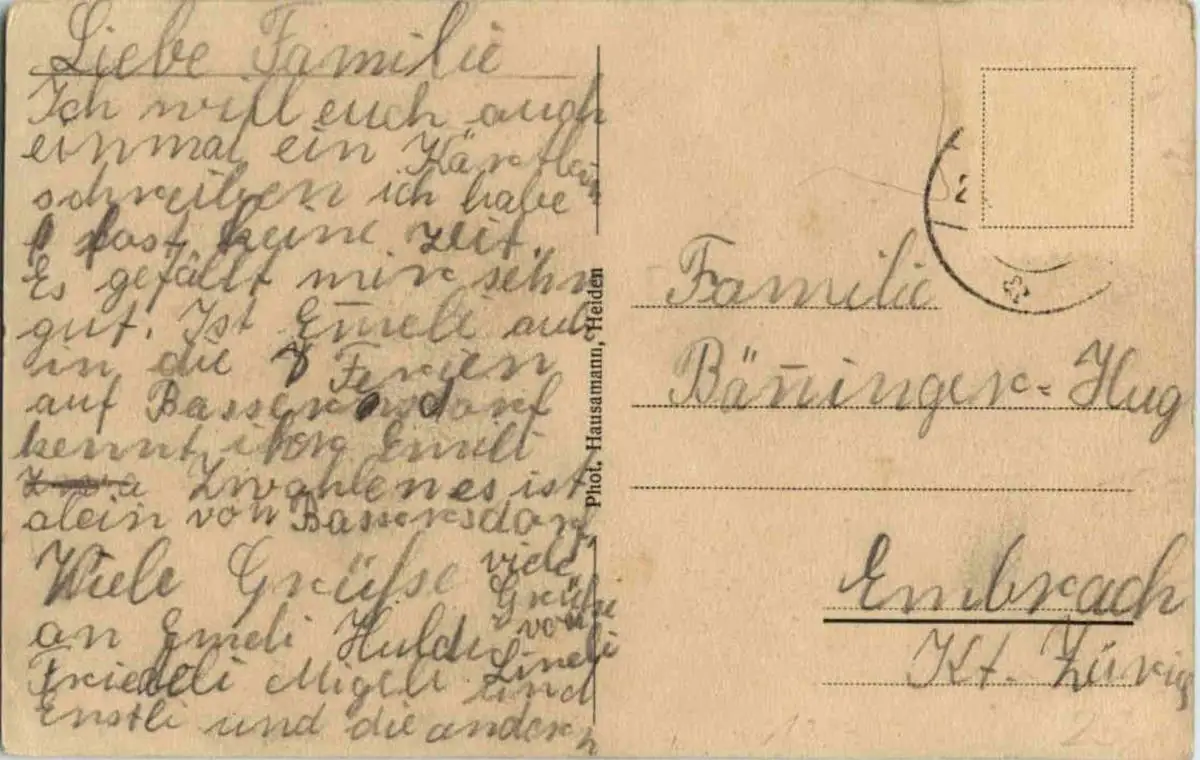 Liebe Familie
Ich will euch auch
einmal ein Kärtlein
schreiben ich habe
fast keine Zeit.
Es gefällt mir sehr
gut. Ist Emeli auch
in die Ferien
auf Bassersdorf
kennt Emili
Zwahlen es ist
alein von Bassersdorf,
Viele Grüße
an Emeli Hulda
Friedeli Migeli und
Ernstli und die andern
viele
Grüße
von
Lineli
Phot. Hausamann, Heiden
2
Familie
Bäninger-Hug
Embrach
Kt. Zürich